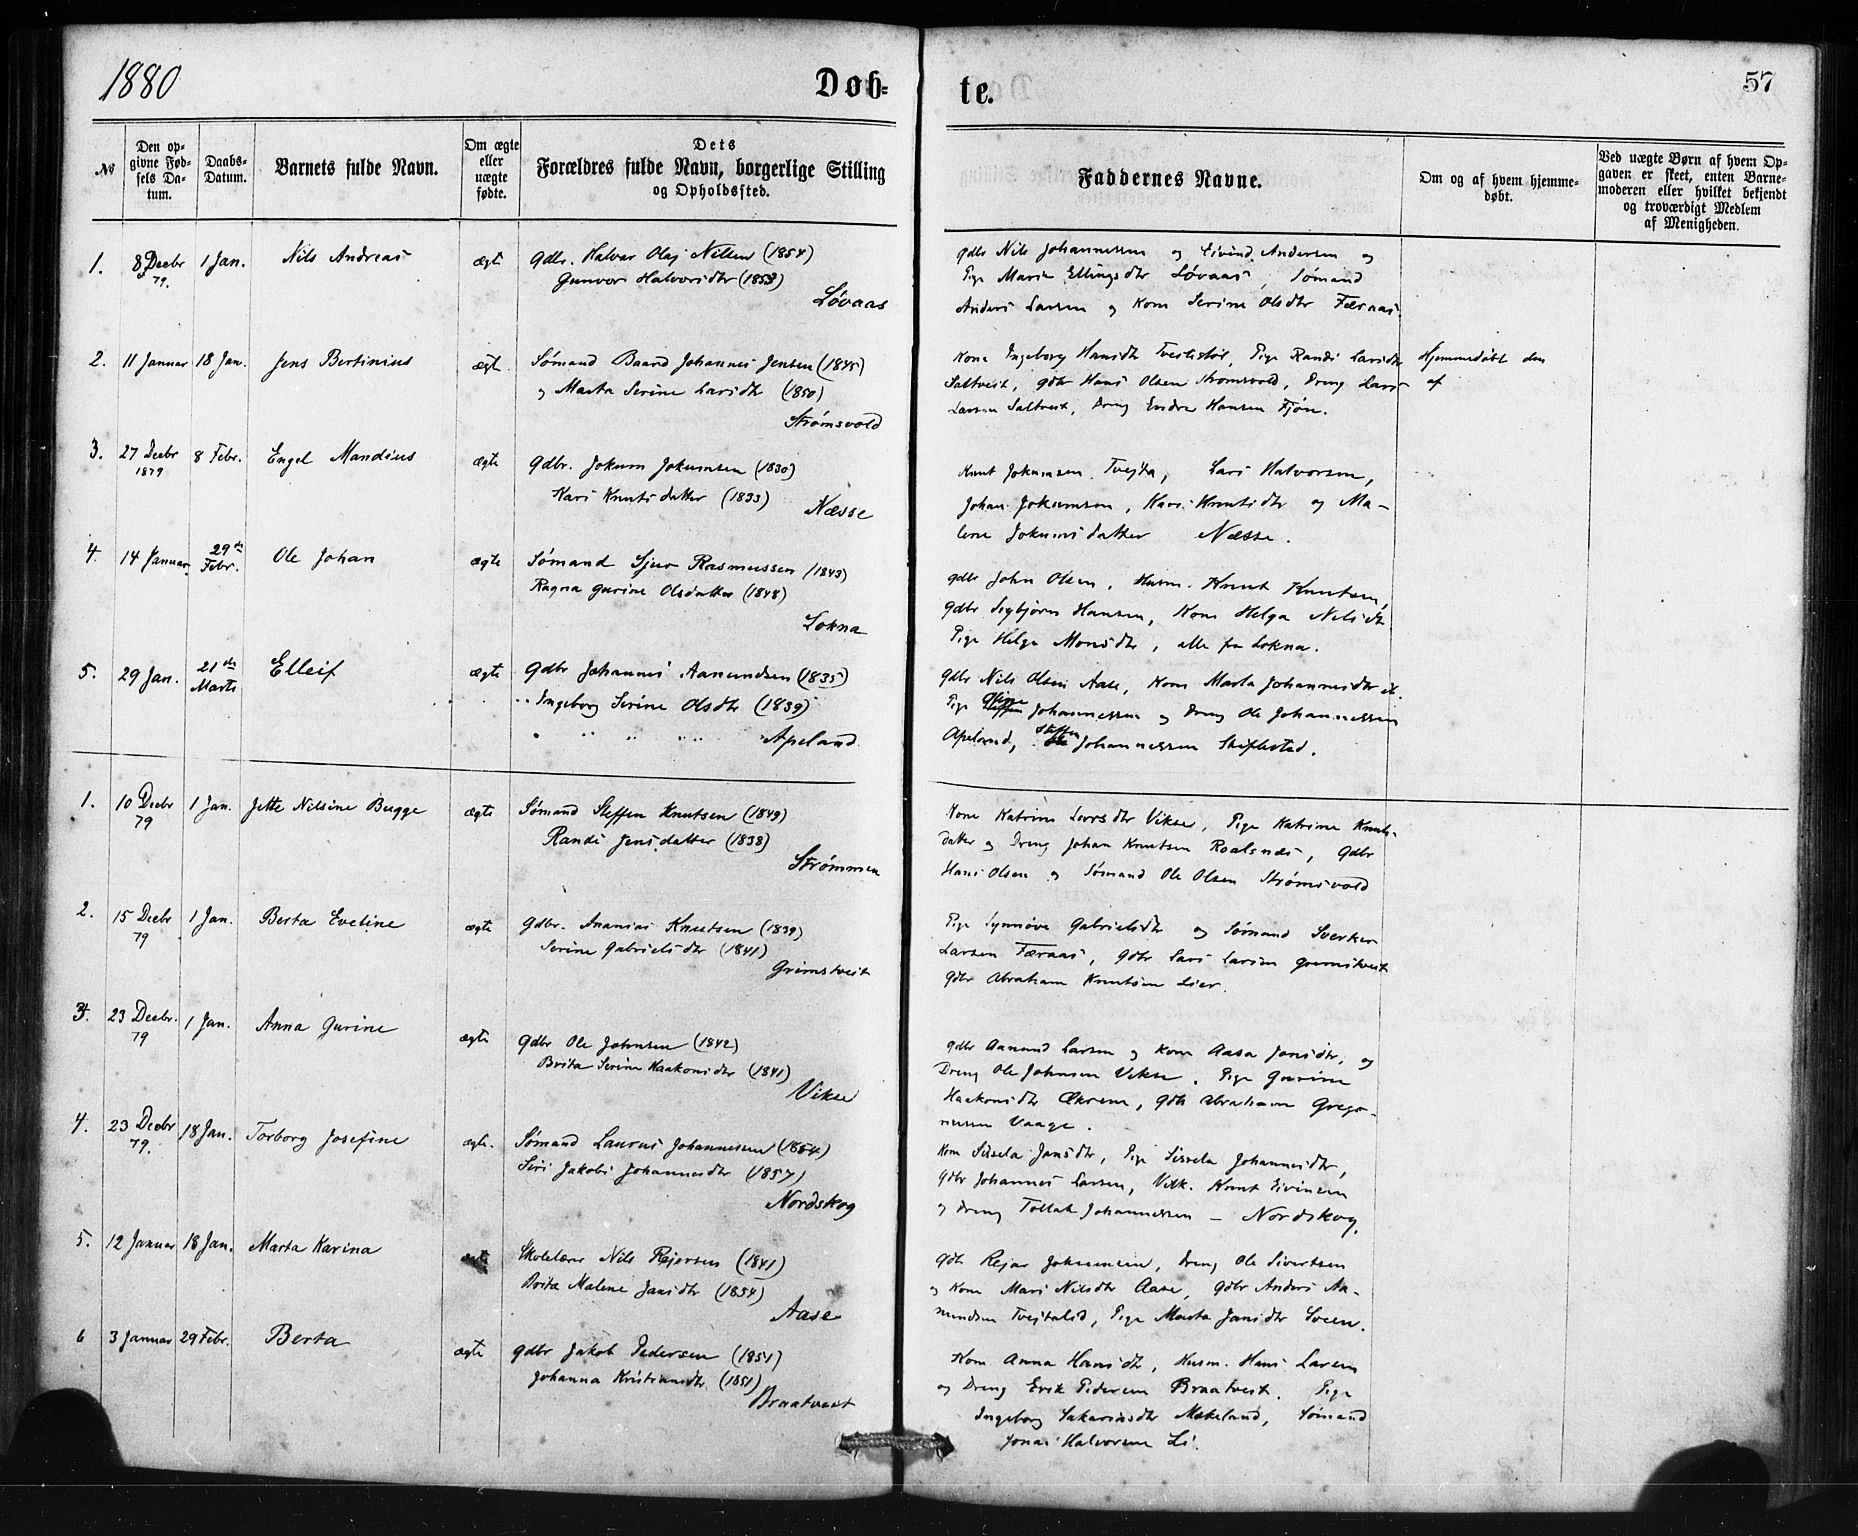 1880
Døb-
te.
57
№
Den op-
givne Fød-
sels Da-
tum.
Daabs-
Datum.
Barnets fulde Navn.
Om ægte
eller
uægte
fødte.
Dets
Forældres fulde Navn, borgerlige Stilling
og Opholdssted.
Faddernes Navne.
Om og af hvem hjemme-
døbt.
Ved uægte Børn af hvem Op-
gaven er skeet, enten Barne-
moderen eller hvilket bekjendt
og troværdigt Medlem
af Menigheden.
1. 8 Decbr 79. 1 Jan. Nils Andreas ægte
Gdbr. Halvar Olaj Nilsen (1854)
Gunvor Halvorsdtr (1853)
Løvaas
Gdbr Nils Johannessen og Eivind Andersen og
Pige Marie Ellingsdtr Løvaas, Sømand
Anders Larsen og Kone Serine Olsdtr Færaas.
2. 11 Januar 18 Jan. Jens Bertinius ægte
Sømand Baard Johannes Jensen (1845)
og Marta Serine Larsdtr (1850)
Strømsvold
Kone Ingeborg Hansdtr Tveitstøl, Pige Randi Larsdtr
Saltveit, Gdbr Hans Olsen Strømsvold, Dreng Lars
Larsen Saltveit, Dreng Endre Hansen Fjøn.
Hjemmedøbt den
af
3. 27 Decbr 1879 8 Febr. Engel Mandius ægte
Gdbr. Jokum Jokumsen (1830)
Kari Knutsdatter (1833)
Næsse
Knut Jokumsen Tvejta, Lars Halvorsen,
Johan Jokumsen, Kari Knutsdtr og Ma-
lene Jokumsdatter Næsse.
4. 14 Januar. 29de Febr. Ole Johan ægte
Sømand Sjur Rasmussen (1843)
Ragna Gurine Olsdatter (1848)
Lokna
Gdbr John Olsen, Husm. Knut Knutsen,
Gdbr Sigbjørn Hansen, Kone Helga Nilsdtr
Pige Helga Monsdtr, alle fra Lokna.
5. 29 Jan. 21de Marts Elleif ægte
Gdbr Johannes Aanundsen (1835)
" Ingeborg Serine Olsdtr (1839)
" " " " " Apeland
Gdbr Nils Olsen Aase, Kone Marta Johannesdtr
Pige Oline Johannessen og Dreng Ole Johannessen
Apeland, Steffen Johannessen Skiflestad.
1. 10 Decbr 79 1 Jan. Jette Nilsine Bugge ægte
Sømand Steffen Knutsen (1849)
Randi Jensdatter (1838)
Strømmen
Kone Katrine Larsdtr Vikse, Pige Katrine Knuts-
datter og Dreng Johan Knutsen Roalsnæs, Gdbr
Hans Olsen og Sømand Ole Olsen Strømsvold
2. 15 Decbr 79 1 Jan. Berta Eveline ægte
Gdbr. Ananias Knutsen (1839)
Serine Gabrielsdtr (1841)
Grimstveit
Pige Synnøve Gabrielsdtr og Sømand Sverker
Larsen Færaas, Gdbr Lars Larsen Grimstveit
Gdbr Abraham Knutsen Lier.
3. 23 Decbr. 79 1 Jan. Anna Gurine ægte
Gdbr Ole Johnsen (1842)
Brita Serine Haakonsdtr (1841)
Vikse
Gdbr Aanund Larsen og Kone Aasa Jansdtr, og
Dreng Ole Johnsen Vikse. Pige Gurine
Haakonsdtr Økrene, Gdbr Abraham Grego-
riussen Vaage.
4. 23 Decbr 79. 18 Jan. Torborg Josefine ægte.
Sømand Laurus Johannessen (1854)
Siri Jakobi Johannesdtr (1857)
Nordskog
Kone Sissela Jansdtr, Pige Sissela Johannesdtr,
Gdbr Johannes Larsen, Vilk. Knut Eivinsen
og Dreng Tollak Johannessen – Nordskog.
5. 12 Januar 18 Jan. Marta Karina ægte
Skolelærer Nils Rejersen (1841)
Brita Malene Jansdtr (1854)
Aase
Gdbr Rejar Johannessen, Dreng Ole Sivertsen
og Kone Mari Nilsdtr Aase, Gdbr Anders Aa-
mundsen Tvejtalid, Pige Marta Jansdtr Sveen.
6 3 Januar 29 Febr. Berta ægte
Gdbr Jakob Pedersen (1851)
Johanna Kristiansdtr (1851)
Braatveit
Kone Anna Hansdtr, Husm. Hans Larsen
og Dreng Erik Pedersen Braatveit. Pige
Ingeborg Sakariasdtr Mækeland, Sømand
Jonas Halvorsen Li.